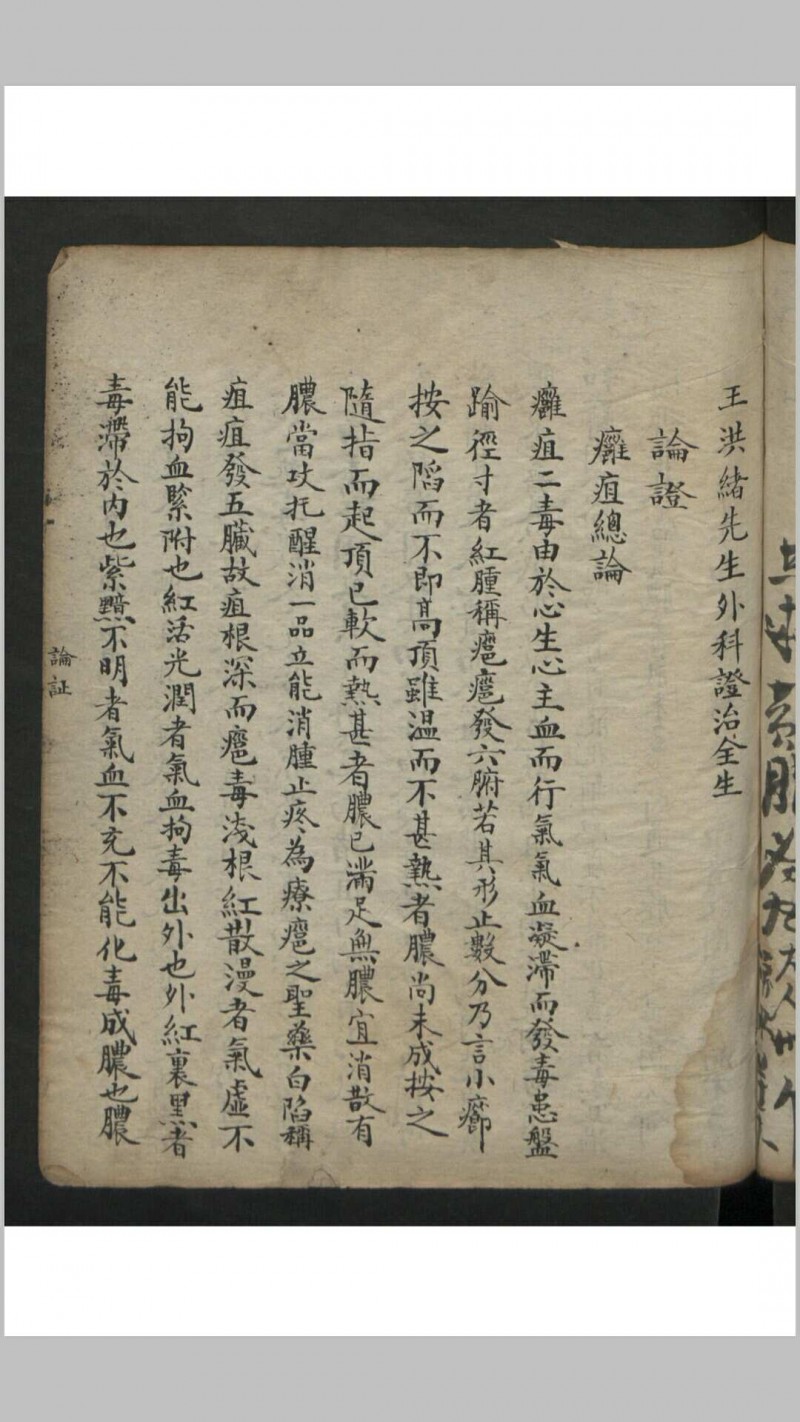 王洪緒先生外科證治全生
論證
癰疽總論
癰疽二毒由於心生心主血而行氣氣血凝滯而發毒患盤
踰徑寸者紅腫稱癰癰發六腑若其形止數分乃言小癤
按之陷而不即高頂雖温而不甚熱者膿尚未成按之
隨指而起頂已軟而熱甚者膿已滿足無膿宜消散有
膿當攻托醒消一品立能消腫止疼為療癰之聖藥白陷稱
疽疽發五臟故疽根深而癰毒淺根紅散漫者氣虛不
能拘血緊附也紅活光潤者氣血拘毒出外也外紅裏黑者
毒滯於內也紫黯不明者氣血不充不能化毒成膿也膿
論証